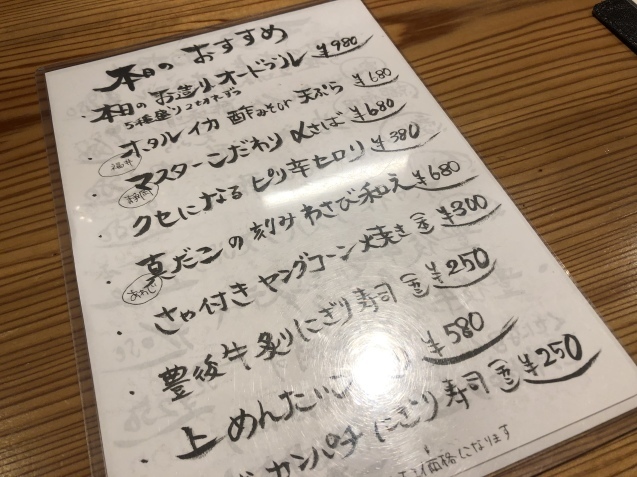 本日の おすすめ
・本日の お造りオードブル ¥980
5種盛り 2切れずつ
・ホタルイカ 酢みそor天ぷら ¥680
福井
・マスターこだわり 〆さば ¥680
・クセになる ピリ辛セロリ ¥380
・真だこの刻みわさび和え ¥680
あわじ
・さや付きヤングコーン焼き ¥300
・豊後牛炙りにぎり寿司 ¥250
・上 めんたいこ ¥580
カンパチにぎり寿司 ¥250
価格になります